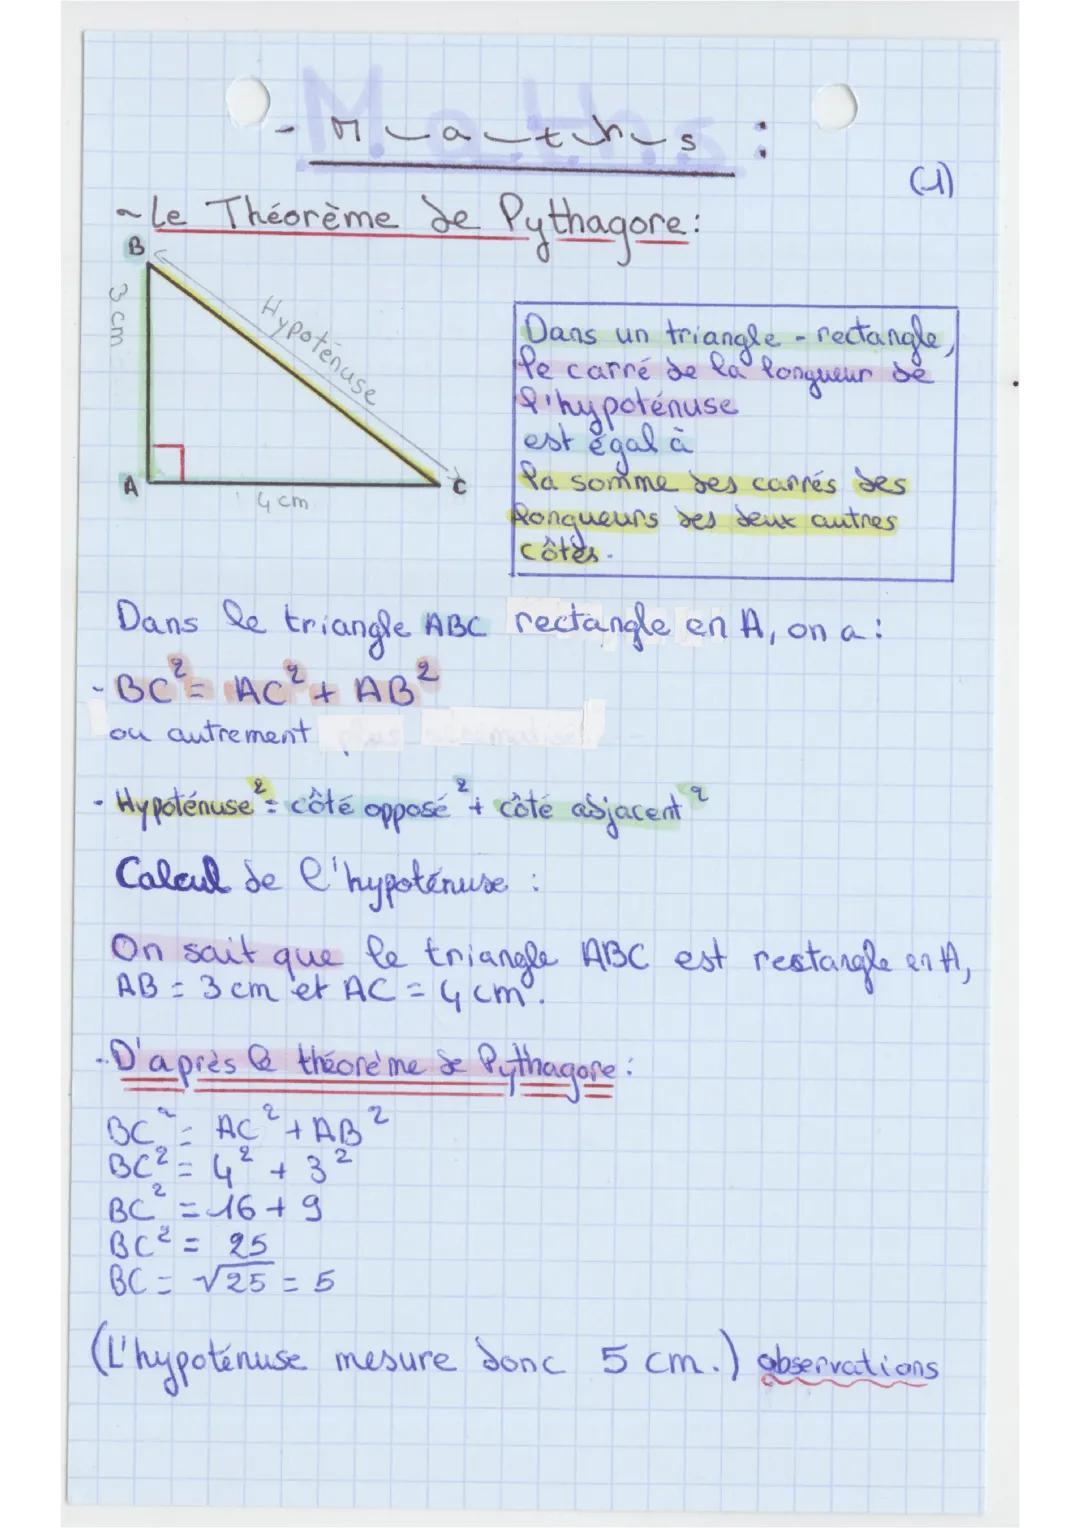 - M_a_t_h_s :
(1)
~ Le Théorème de Pythagore:
B
3 cm
Hypoténuse
A
4 cm
C
Dans un triangle - rectangle,
le carré de la longueur de
l'hypoténuse
est égal à
la somme des carrés des
longueurs des deux autres
côtés.
Dans le triangle ABC rectangle en A, on a :
- BC² = AC² + AB²
ou autrement
- Hypoténuse² = côté opposé² + côté adjacent²
Calcul de l'hypoténuse :
On sait que le triangle ABC est restangle en A,
AB = 3 cm et AC = 4 cm.
- D'après le théorème de Pythagore :
BC² = AC² + AB²
BC² = 4² + 3²
BC² = 16 + 9
BC² = 25
BC = √25 = 5
(L'hypoténuse mesure donc 5 cm.) observations